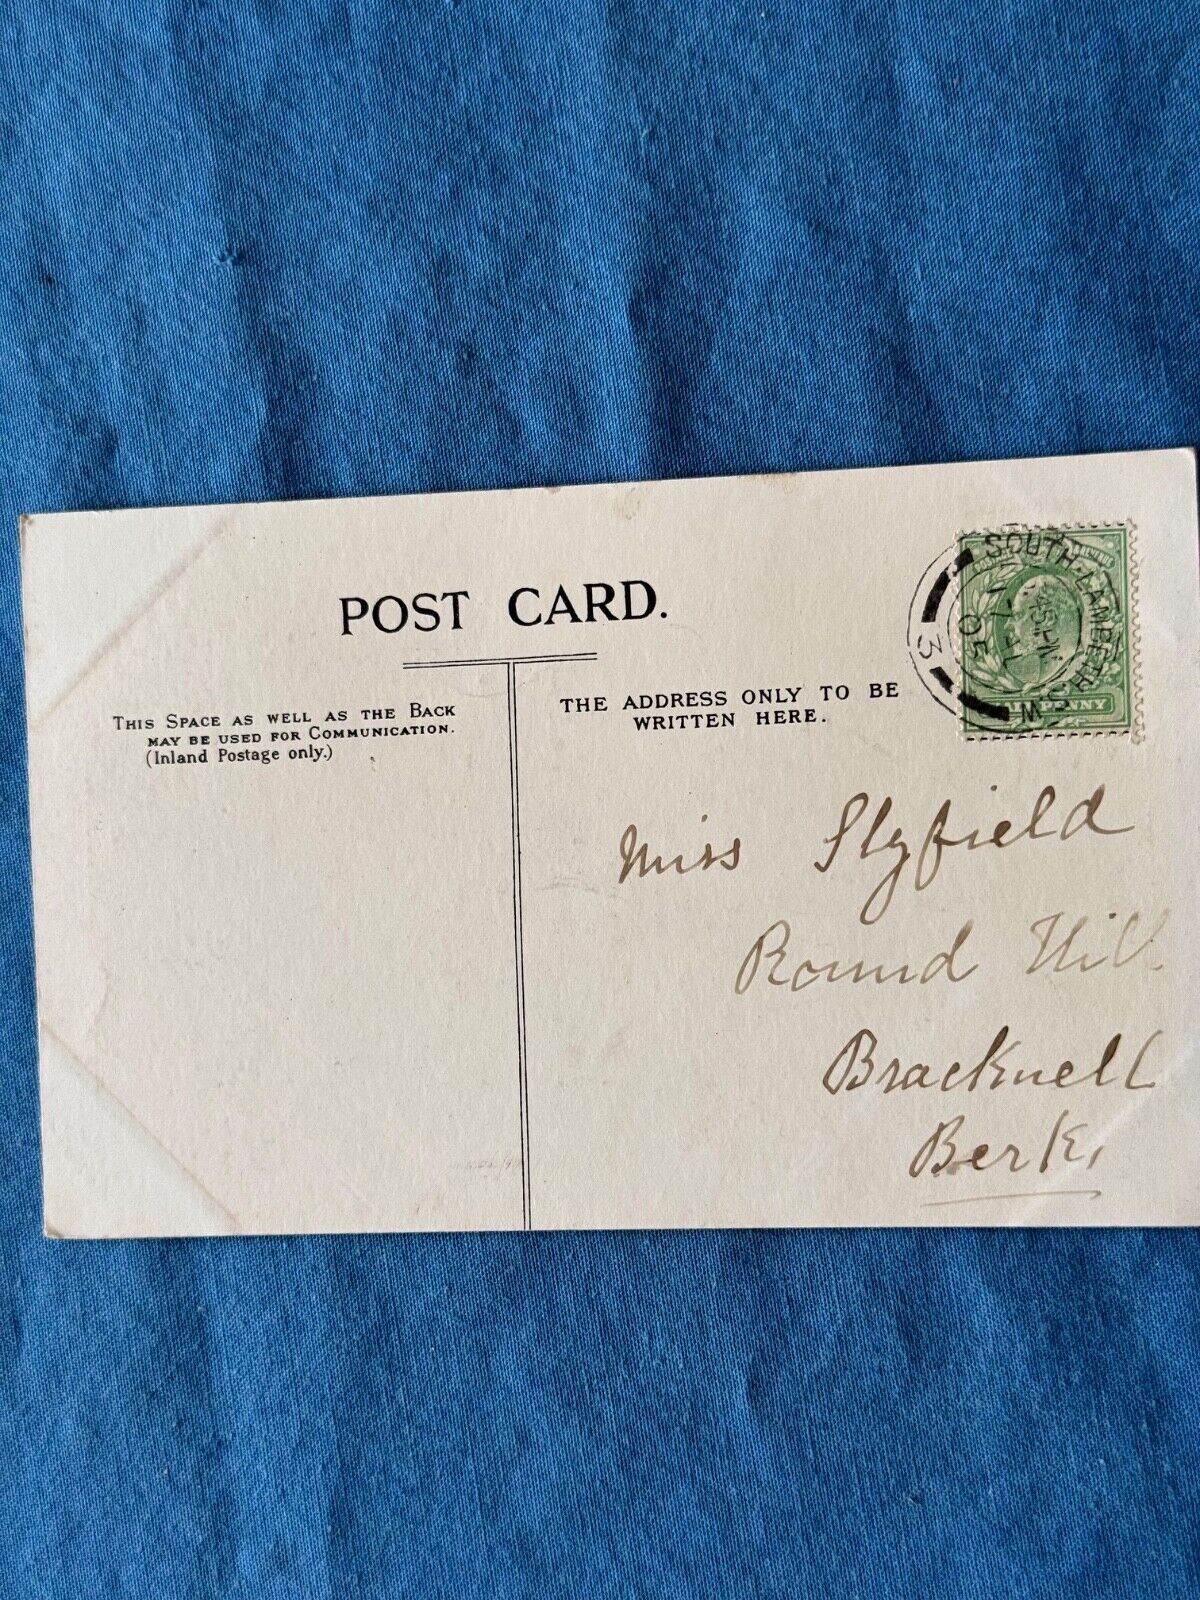 POST CARD.
THIS SPACE AS WELL AS THE BACK
MAY BE USED FOR COMMUNICATION.
(Inland Postage only.)
THE ADDRESS ONLY TO BE
WRITTEN HERE.
SOUTH-LAMBETH
3
05
Miss Slyfield
Round Hill
Bracknell
Berks